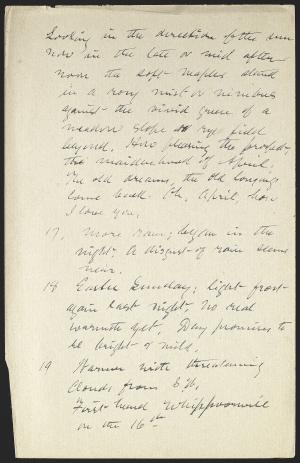 Looking in the direction of the sun
now in the late or mid after-
noon the soft maples stand
in a rosy mist or nimbus
against the vivid green of a
meadow slope or rye field
beyond. How pleasing the prospect,
the maidenhood of April.
The old dreams, the old longings
come back. Oh, April, how
I love you.
17, more rain; began in the
night. A disgust of rain seems
near.
18 Easter Sunday; light frost
again last night, no real
warmth yet. Day promises to
be bright & mild.
19 Warmer with threatening
clouds from S.W.
First heard Whippoorwill
on the 16th